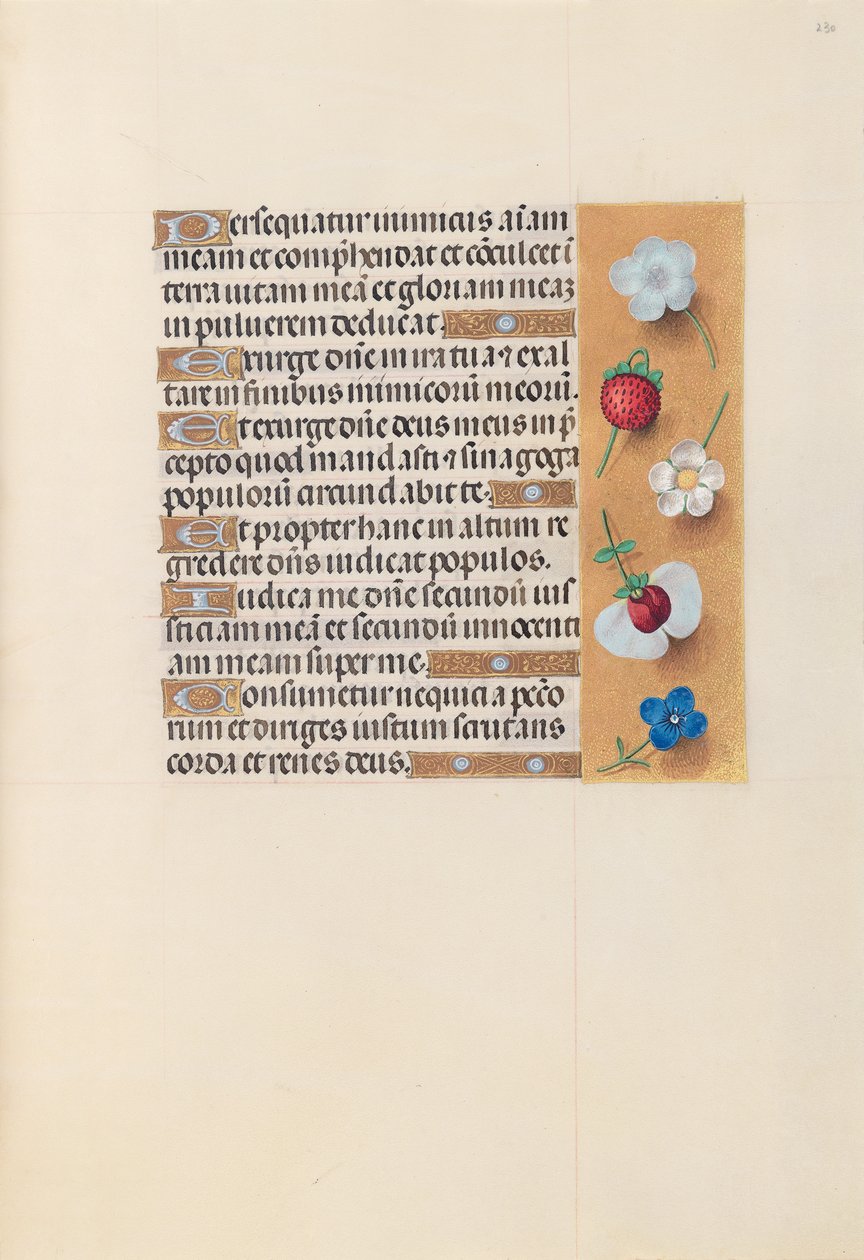 230
Persequatur inimicus aīam
meam et comp̄hendat et cōculcet ī
terra uitam meā et gloriam meaꝫ
in puluerem deducat.
Exurge dn̄e in ira tua ⁊ exal
tare in finibus inimicorū meorū.
Et exurge dn̄e deus meus in p̄
cepto quod mandasti ⁊ sinagoga
populorū circundabit te.
Et propter hanc in altum re
gredere dn̄s iudicat populos.
Iudica me dn̄e secundū ius
sticiam meā et secundū innocenti
am meam super me.
Consumetur nequicia pecc̄o
rum et diriges iustum scrutans
corda et renes deus.